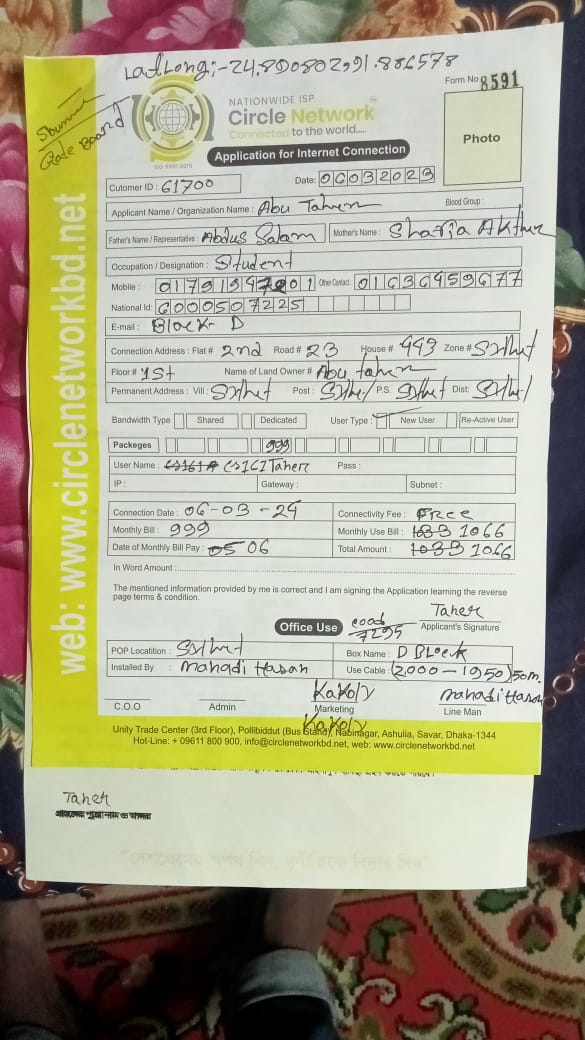 LatLong:-24.890802,91.886578
Form No 8591
NATIONWIDE ISP
Circle Network
Connected to the world....
ISO 9001:2015
Photo
Application for Internet Connection
Cutomer ID : 61700
Date: 06032023
Applicant Name / Organization Name : Abu Taher Blood Group :
Father's Name / Representative : Abdus Salam Mother's Name : Akthur
Occupation / Designation : Student
Mobile : Other Contact : 01636959677
National Id: 6000507225
E-mail : Block- D
Connection Address : Flat # 2nd Road # 23 House # 443 Zone # Sylhet
Floor # 1st Name of Land Owner # Abu taher
Permanent Address : Vill : Sylhet Post : Sylhet P.S. Sylhet Dist: Sylhet
Bandwidth Type Shared Dedicated User Type : New User Re-Active User
Packeges 999
User Name : Cs1CITaher Pass :
IP : Gateway : Subnet :
Connection Date : 06-03-24 Connectivity Fee : Free
Monthly Bill : 999 Monthly Use Bill : 1033 1066
Date of Monthly Bill Pay : 05 06 Total Amount : 1033 1066
In Word Amount :
The mentioned information provided by me is correct and I am signing the Application learning the reverse
page terms & condition.
Taher
Office Use
7295
Applicant's Signature
POP Locatition : Sylhet Box Name : D BLock
Installed By : mahadi Hasan Use Cable : (2000-1950) 50m.
Kakoly mahadi Hasan
C.O.O Admin Marketing Line Man
Kakoly
Unity Trade Center (3rd Floor), Pollibiddut (Bus Stand), Nabinagar, Ashulia, Savar, Dhaka-1344
Hot-Line: + 09611 800 900, info@circlenetworkbd.net, web: www.circlenetworkbd.net
web: www.circlenetworkbd.net
Taher